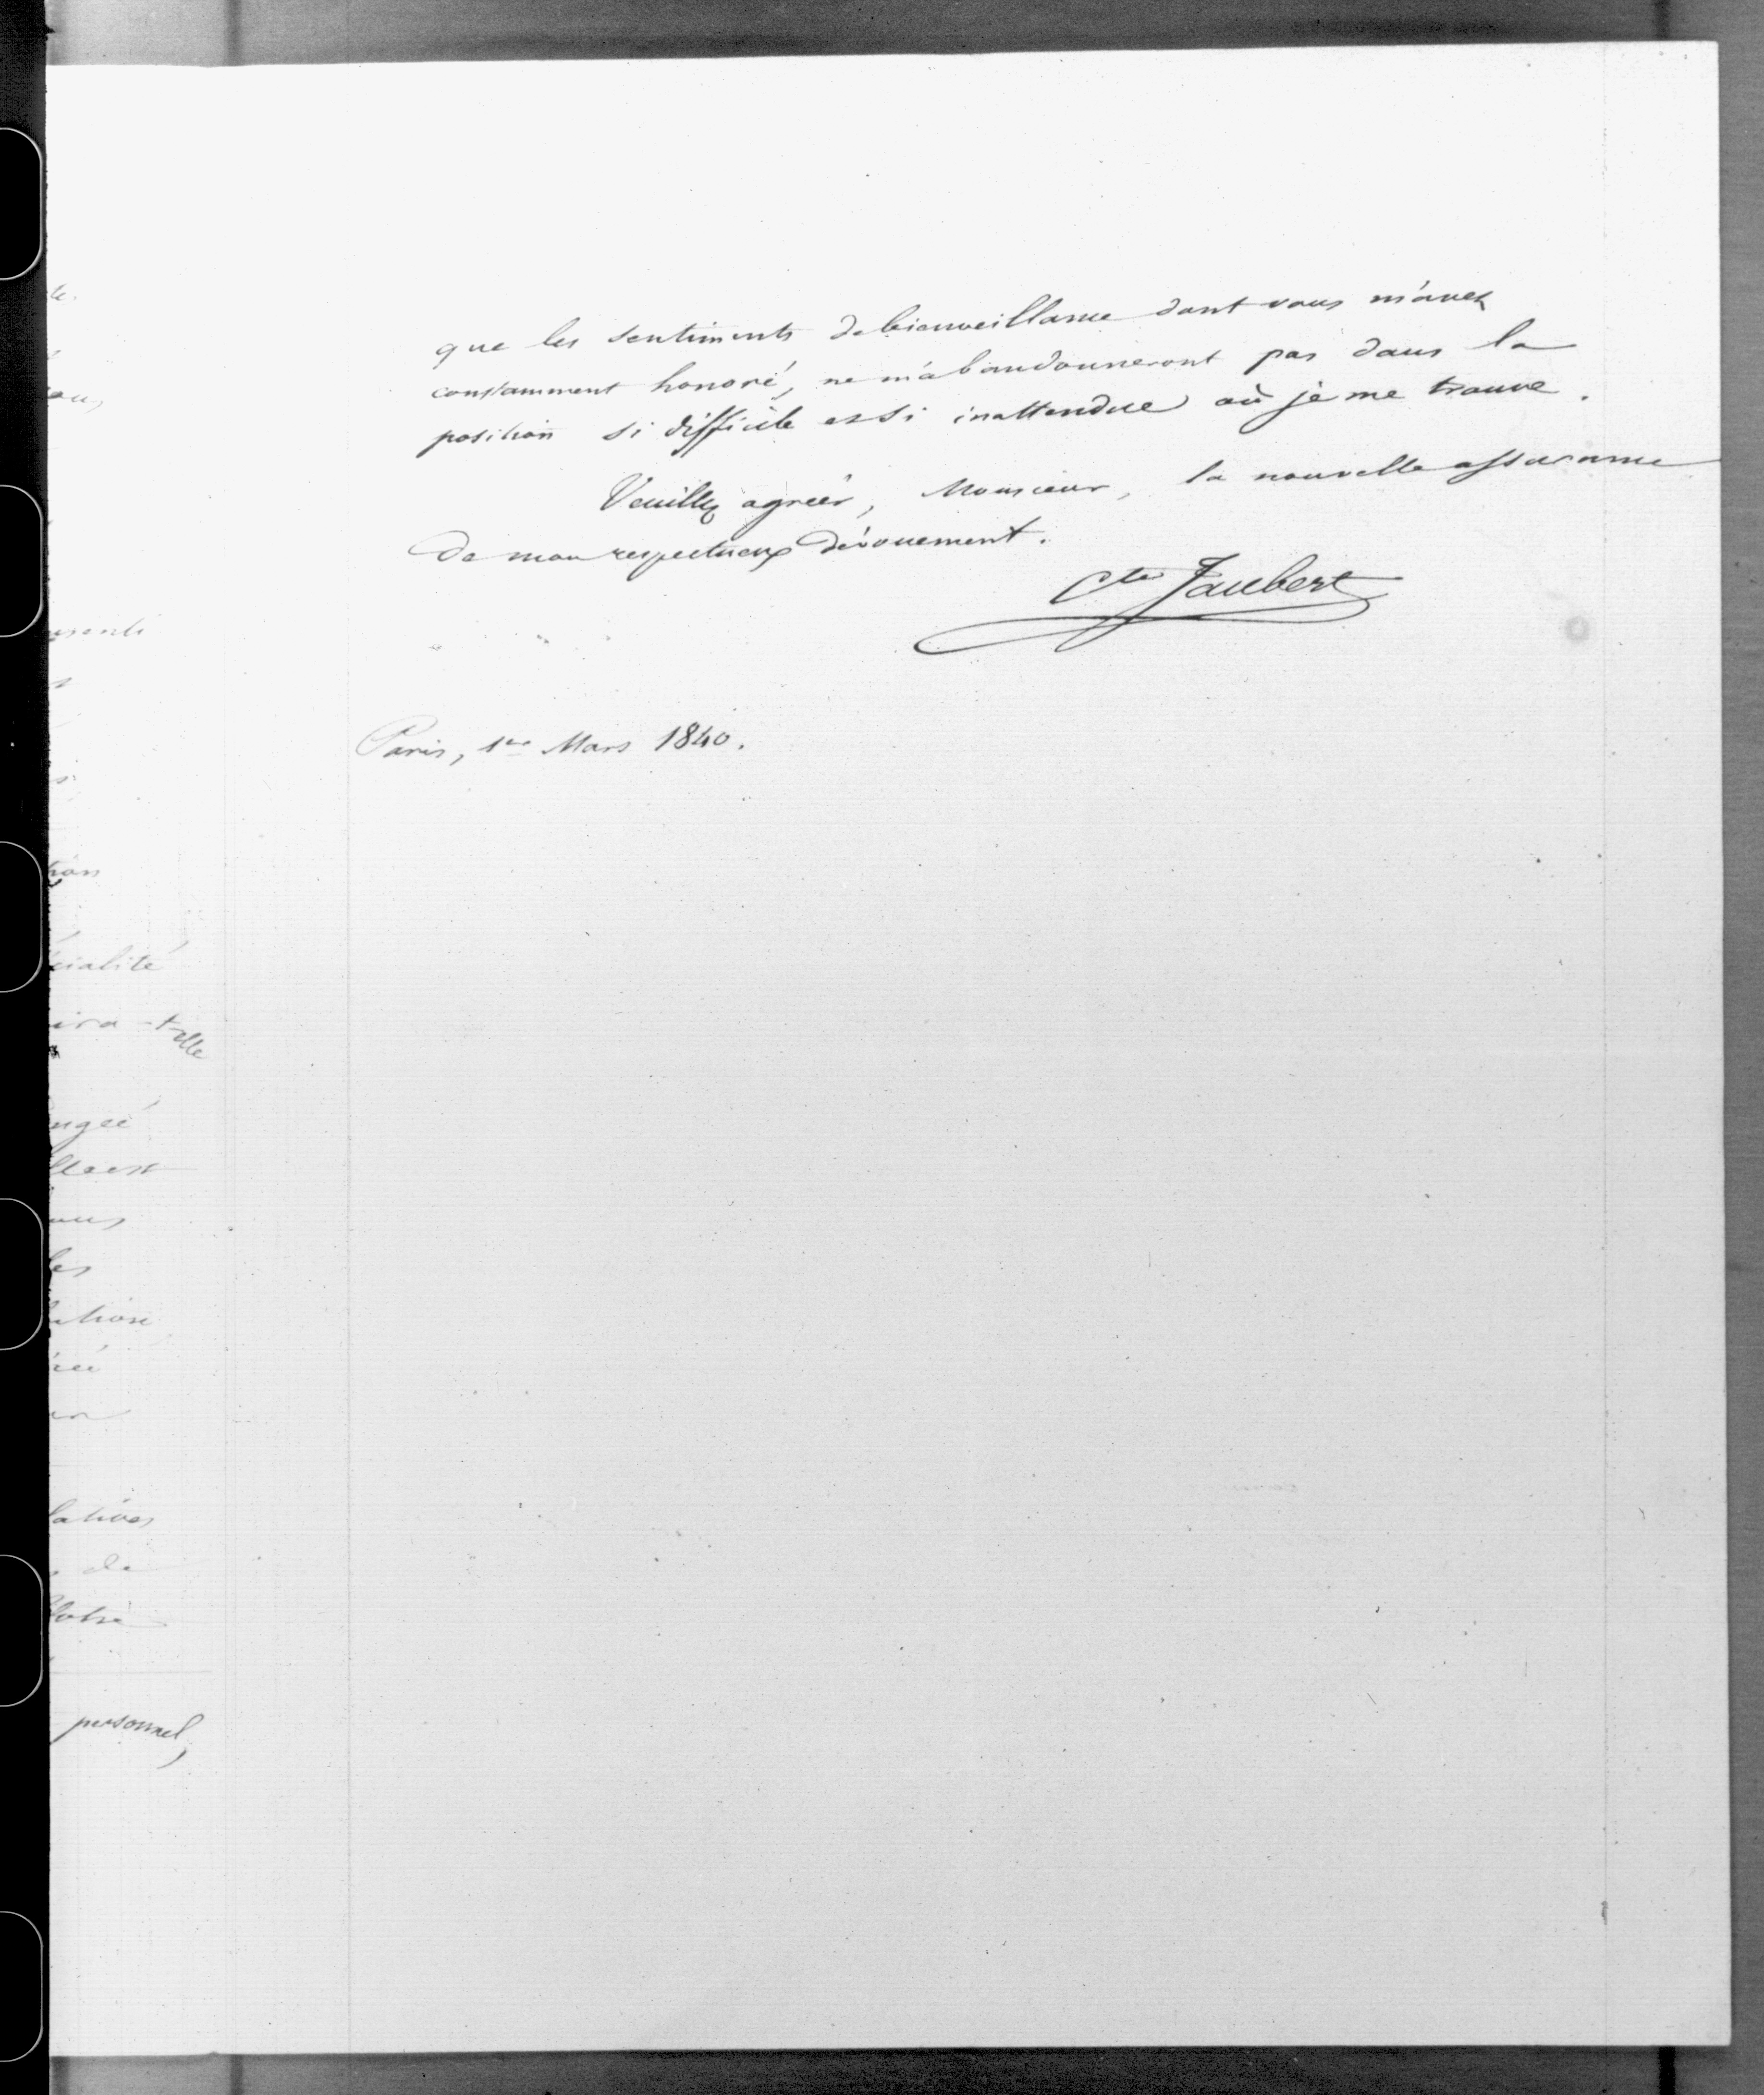 que les sentiments de bienveillance dont vous m'avez
constamment honoré, ne m'abandonneront pas dans la
position si difficile et si inattendue où je me trouve.
Veuillez agréer, Monsieur, la nouvelle assurance
de mon respectueux dévouement.
Cte Jaubert
Paris, 1er Mars 1840.
cialité
ira-t-elle
les
de
personnel,